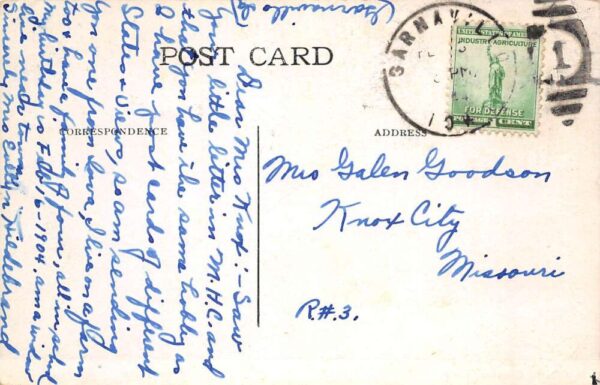 (Garnavillo
POST CARD
GARNAVILL
PM
1
UNITED STATES OF AMERICA
INDUSTRY AGRICULTURE
FOR DEFENSE
1 CENT
CORRESPONDENCE
ADDRESS
Dear Mrs Knox:- Saw
your little letter in M.H.C. and
that you have the same hobby as
I have, post cards of different
States & Views, so am sending
you one from Iowa, I live on a farm
& have family of four, all in
my is Feb 16-1904. am a widow
Sincerely Mrs Hildebrand
Mrs Galen Goodson
Knox City
Missouri
R#.3.